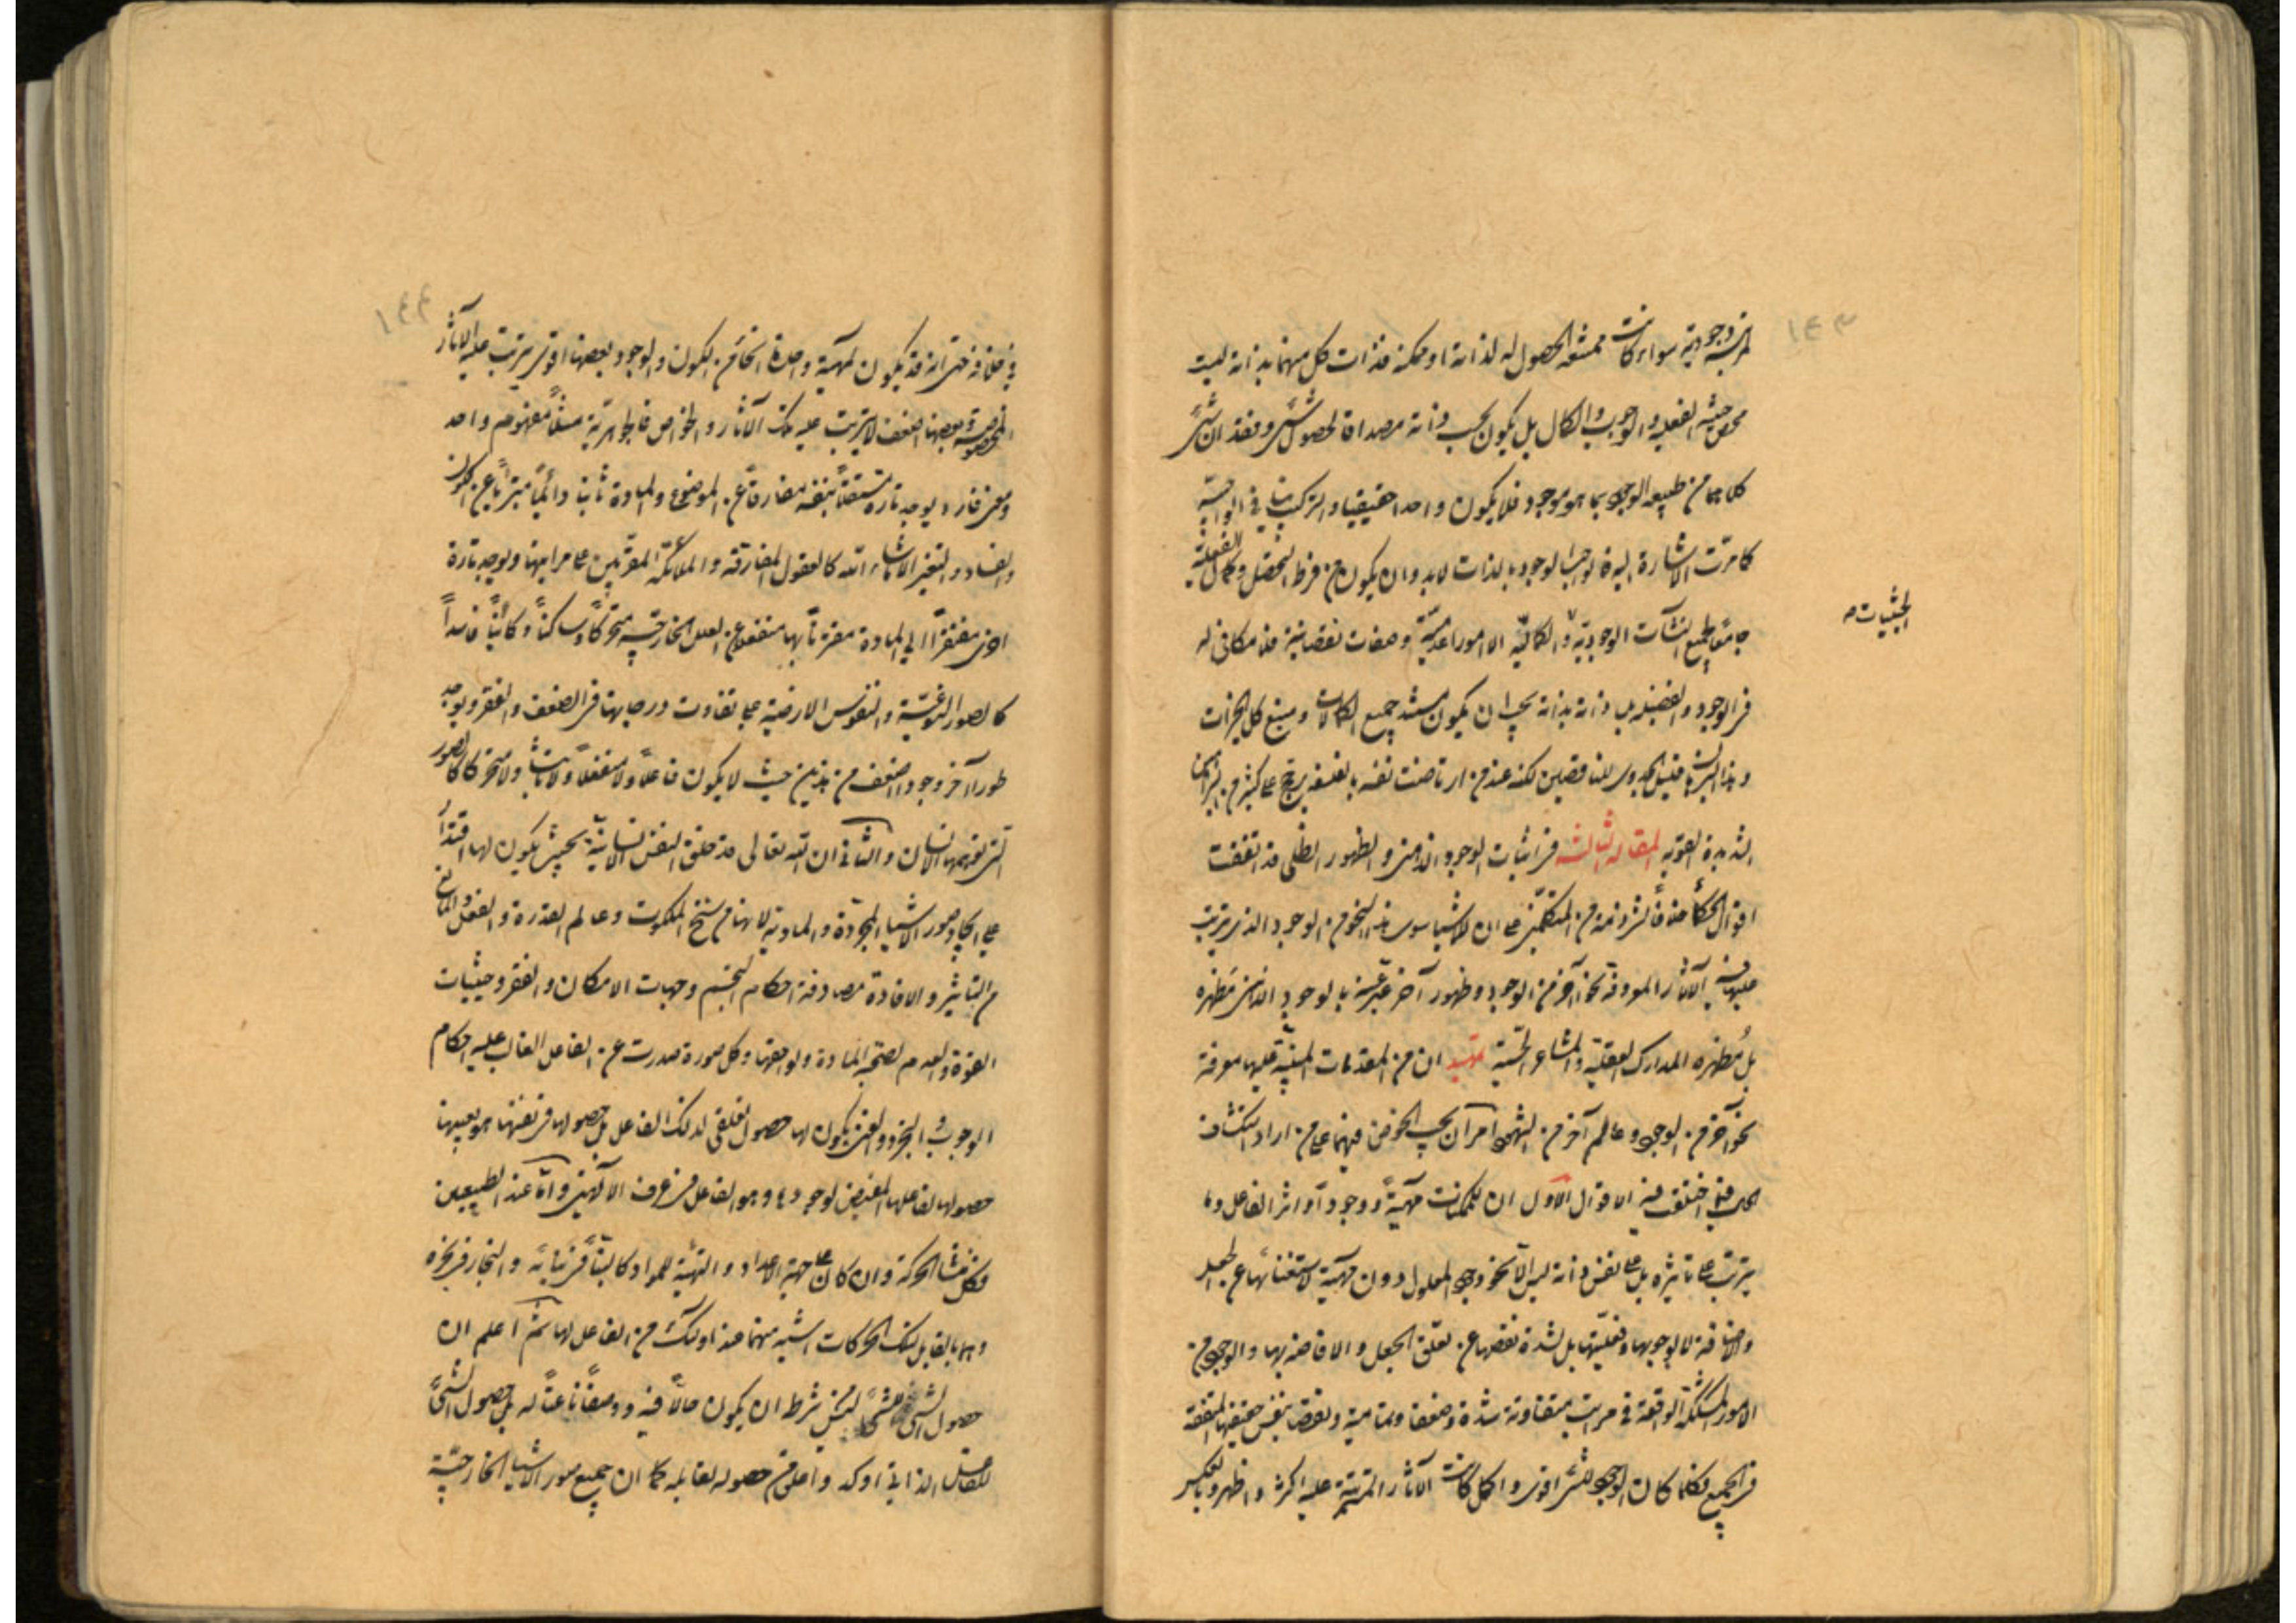 ١٤٣
مرتبة وجودية سواء كانت ممتنعة الحصول له لذاته او ممكنة فذات كل منهما بذاته ليست
محض حيثية الفعلية والوجوب والكمال بل يكون بحسب ذاته مصداقا لحصول شئ وفقدان شئ
كلاهما من طبيعة الوجود بما هو موجود فلا يكون واحدا حقيقيا والتركيب ينافي الواجبية
كما مرّت الاشارة اليه فواجب الوجود بالذات لابد وان يكون من فرط التحصّل وكمال الفعلية
جامعا لجميع النشآت الوجودية والكمالية الا امورا عدمية وصفات نقصانية فلا مكافئ له
الحيثيات
في الوجود والفضيلة بل ذاته بذاته يجب ان يكون مستند جميع الكمالات ومنبع كل الخيرات
وهذا البرهان قليل الجدوى للناقصين لكنه عند من ارتاضت نفسه بالفلسفة يرجح على كثير من البراهين
الشديدة القوية المقالة الثالثة في اثبات الوجود الذهني والظهور الظلي قد اتفقت
اقوال الحكماء خلافا لشرذمة من المتكلمين على ان للاشياء سوى هذا النحو من الوجود الذي يترتب
عليها فيه الآثار المعروفة نحوا آخر من الوجود وظهور آخر عبّر عنه بالوجود الذهني مَظهره
بل مُظهره المدارك العقلية والمشاعر الحسية تمهيد ان من المقدمات المبنية عليها معرفة
نحو آخر من الوجود وعالم آخر من الشهود امران يجب الخوض فيهما على من اراد انكشاف
الحق فيما اختلفت فيه الاقوال الاول ان للممكنات مهيةً ووجودا واثر الفاعل وما
يترتب على تأثيره بل على نفس ذاته ليس الا نحو وجود المعلول دون مهيته لاستغنائها عن الجعل
والاضافة لا لوجوبها وفعليتها بل لشدة نقصها عن تعلق الجعل والافاضة بها والوجود من
الامور المشككة الواقعة في مراتب متفاوتة شدة وضعفا وتمامية ونقصا بنفس حقيقتها المتفقة
في الجميع فكلما كان الوجود للشئ اقوى واكمل كانت الآثار المترتبة عليه اكثر واظهر وبالعكس
١٤٤
في خلافه حتى انه قد يكون لمهية واحدة انحاء من الكون والوجود بعضها اقوى يترتب عليه الآثار
المخصوصة وبعضها اضعف لا يترتب عليه تلك الآثار والخواص فالجوهرية مثلا مفهوم واحد
ومعنى فارد يوجد تارة مستقلا بنفسه مفارقا عن الموضوع والمادة ثابتا دائما متبرّيا عن الكون
والفساد والتغير الا ما شاء الله كالعقول المفارقة والملائكة المقربين على مراتبها ويوجد تارة
اخرى مفتقرا الى المادة مقترنا بها منفعلا عن العلل الخارجية متحركا وساكنا وكائنا فاسدا
كالصور النوعية والنفوس الارضية على تفاوت درجاتها في الضعف والفقر ويوجد
طورا آخر وجودا اضعف من هذين حيث لا يكون فاعلا ولا منفعلا ولا ثابتا ولا متحركا كالصور
التي توهمها الانسان والثاني ان الله تعالى قد خلق النفس الانسانية بحيث يكون لها اقتدار
على ايجاد صور الاشياء المجردة والمادية لانها من سنخ الملكوت وعالم القدرة والفعل والمانع
من التأثير والافادة مصادفة احكام التجسم وجهات الامكان والفقر وحيثيات
القوة والعدم لصحبة المادة ولواحقها وكل صورة صدرت عن الفاعل الغالب عليه احكام
الوجوب والتجرد والغنى يكون لها حصول تعلقي لذلك الفاعل بل حصولها في نفسها هو بعينه
حصولها لفاعلها المفيض لوجودها وهو الفاعل في عرف الالهيين واما عند الطبيعيين
فكل منشأ الحركة وان كان على جهة الاعداد والتهيئة للمواد كالبنّاء في بنائه والنجار في نجره
وهما بالقابل لتلك الحركات اشبه منهما عند اولئك من الفاعل لها ثم اعلم ان
حصول الشئ للشئ ليس من شرطه ان يكون حالا فيه ووصفا ناعتا له بل حصول الشئ
للفاعل الذاتي اوكد واعلى من حصوله لقابله كما ان جميع صور الاشياء الخارجية